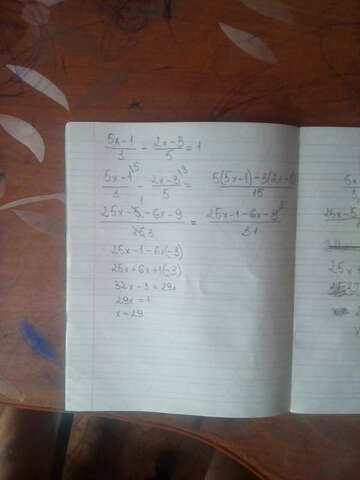 5x-1/3 - 2x-3/5 = 1
5x-1/3 - 2x-3/5 = 5(5x-1)-3(2x-1)/15
25x-5-6x-9 = 25x-1-6x-
25x-1-6x(-3)
25x+6x+1(-3)
32x-3=29x
29x=1
x=29
5x
25x-5
25x